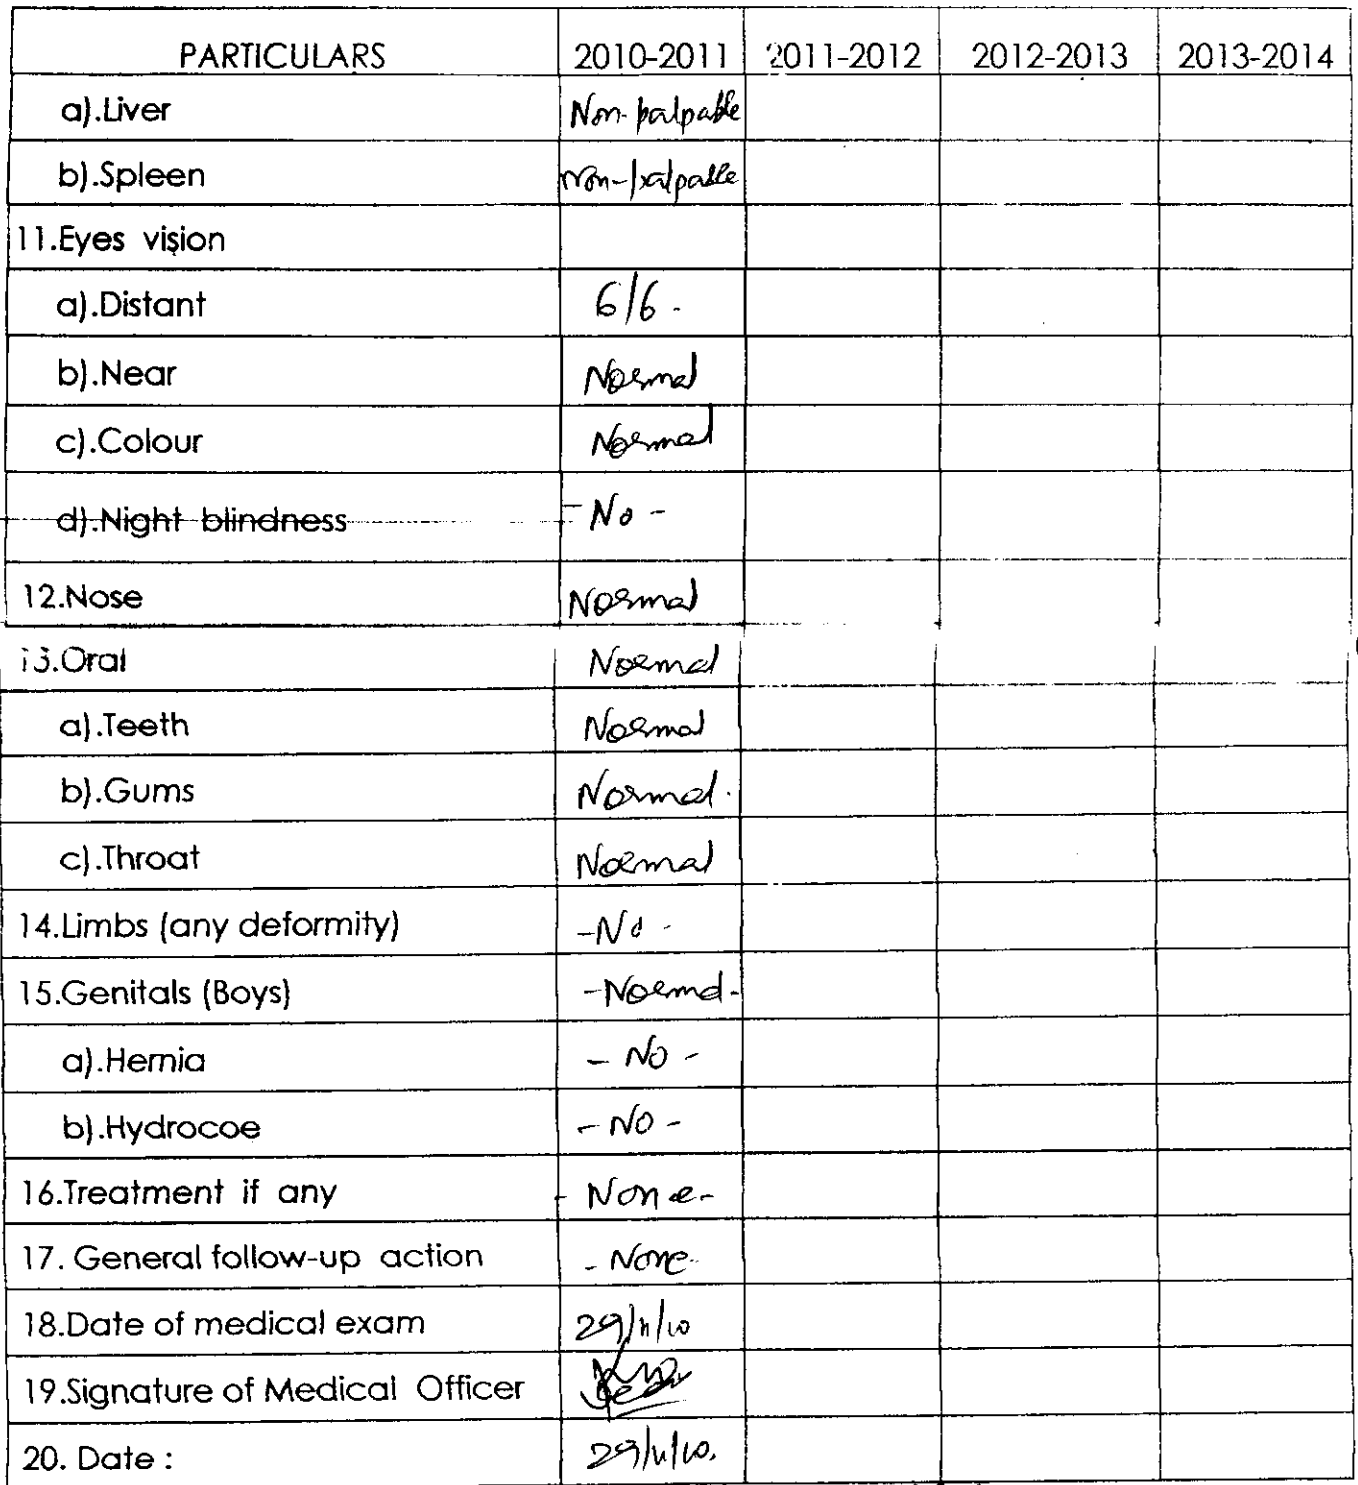 PARTICULARS 2010-2011 2011-2012 2012-2013 2013-2014
a).Liver Non-palpable
b).Spleen Non-palpable
11.Eyes vision
a).Distant 6/6.
b).Near Normal
c).Colour Normal
d).Night blindness - No -
12.Nose Normal
13.Oral Normal
a).Teeth Normal
b).Gums Normal.
c).Throat Normal
14.Limbs (any deformity) -No-
15.Genitals (Boys) -Normal-
a).Hernia - No -
b).Hydrocoe - NO -
16.Treatment if any - None-
17. General follow-up action - None-
18.Date of medical exam 29/11/10
19.Signature of Medical Officer
20. Date : 29/11/10.